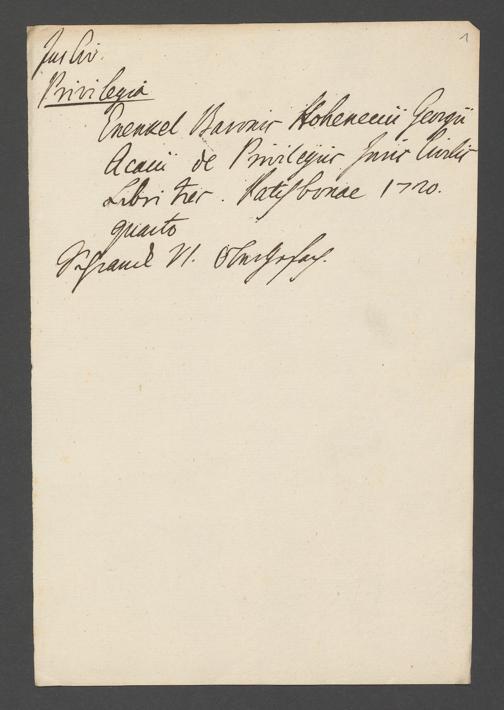 1
Jus Civ.
Privilegia
Enenkel Baronis Hoheneccii Georgii
Acacii de Privilegiis Juris Civilis
Libri tres. Ratisbonae 1720.
quarto
VI.